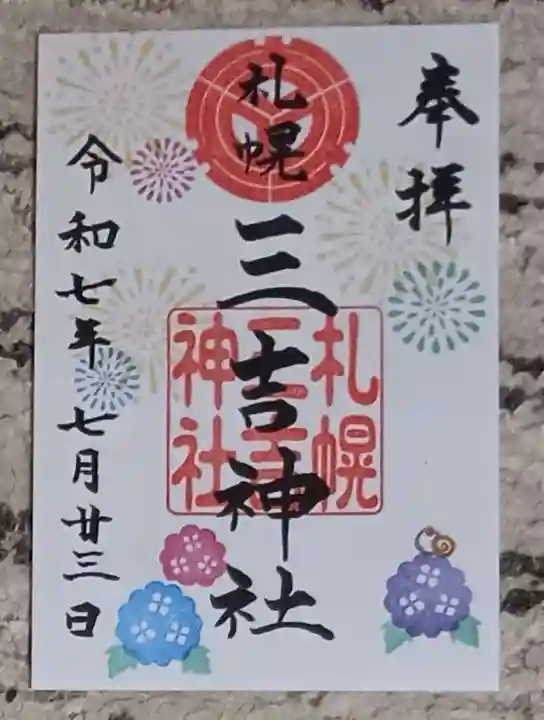 奉拝
札幌
三吉神社
札幌
三吉
神社
令和七年 七月廿三日